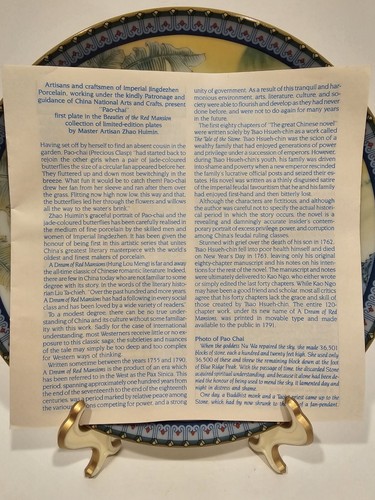 Artisans and craftsmen of Imperial Jingdezhen
Porcelain, working under the kindly Patronage and
guidance of China National Arts and Crafts, present
"Pao-chai"
first plate in the Beauties of the Red Mansion
collection of limited-edition plates
by Master Artisan Zhao Huimin.
Having set off by herself to find an absent cousin in the
garden, "Pao-chai (Precious Clasp) 'had started back to
rejoin the other girls when a pair of jade-coloured
butterflies the size of a circular fan appeared before her.
They fluttered up and down most bewitchingly in the
breeze. What fun it would be to catch them! Pao-chai
drew her fan from her sleeve and ran after them over
the grass. Flitting now high now low, this way and that,
the butterflies led her through the flowers and willows
all the way to the water's brink.'
Zhao Huimin's graceful portrait of Pao-chai and the
jade-coloured butterflies has been carefully realised in the
medium of fine porcelain by the skilled men and
women of Imperial Jingdezhen. It has been given the
honour of being first in this artistic series that unites
China's greatest literary masterpiece with the world's
oldest and finest makers of porcelain.
A Dream of Red Mansions (Hung Lou Meng) is far and away
the all-time classic of Chinese romantic literature. Indeed,
there are few in China today who are not familiar to some
degree with its story. In the words of the literary histor-
ian Liu Ta-chieh, "Over the past hundred and more years
A Dream of Red Mansions has had a following in every social
class and has been loved by a wide variety of readers."
To a modest degree, there can be no true under-
standing of China and its culture without some familiar-
ity with this work. Sadly for the case of international
understanding, most Westerners receive little or no ex-
posure to this classic saga; the subtleties and nuances
of the tale may simply be too deep and too complex
for Western ways of thinking.
Written sometime between the years 1755 and 1790,
A Dream of Red Mansions is the product of an era which
has been referred to in the West as the Pax Sinica. This
period, spanning approximately one hundred years from
the end of the seventeenth to the end of the eighteenth
centuries, was a period marked by relative peace among
the various factions competing for power, and a strong
unity of government. As a result of this tranquil and har-
monious environment, arts, literature, culture, and so-
ciety were able to flourish and develop as they had never
done before, and were not to do again for many years
in the future.
The first eighty chapters of "The great Chinese novel"
were written solely by Tsao Hsueh-chin as a work called
The Tale of the Stone. Tsao Hsueh-chin was the scion of a
wealthy family that had enjoyed generations of power
and privilege under a succession of emperors. However,
during Tsao Hsueh-chin's youth, his family was driven
into shame and poverty when a new emperor rescinded
the family's lucrative official posts and seized their es-
tates. His novel was written as a thinly disguised satire
of the imperial feudal favouritism that he and his family
had enjoyed first-hand and then bitterly lost.
Although the characters are fictitious, and although
the author was careful not to specify the actual histori-
cal period in which the story occurs, the novel is a
revealing and damningly accurate insider's contem-
porary portrait of excess, privilege, power, and corruption
among China's feudal ruling classes.
Stunned with grief over the death of his son in 1762,
Tsao Hsueh-chin fell into poor health himself and died
on New Year's Day in 1763, leaving only his original
eighty-chapter manuscript and his notes on his inten-
tions for the rest of the novel. The manuscript and notes
were ultimately delivered to Kao Ngo, who either wrote
or simply edited the last forty chapters. While Kao Ngo
may have been a good friend and scholar, most all critics
agree that his forty chapters lack the grace and skill of
those created by Tsao Hsueh-chin. The entire 120-
chapter work, under its new name of A Dream of Red
Mansions, was printed in movable type and made
available to the public in 1791.
Photo of Pao Chai
When the goddess Nu Wa repaired the sky, she made 36,501
blocks of stone, each a hundred and twenty feet high. She used only
36,500 of these and threw the remaining block down at the foot
of Blue Ridge Peak. With the passage of time, the discarded Stone
acquired spiritual understanding, and because it alone had been de-
nied the honour of being used to mend the sky, it lamented day and
night in distress and shame.
One day, a Buddhist monk and a Taoist priest came up to the
Stone, which had by now shrunk to the of a fan-pendant.